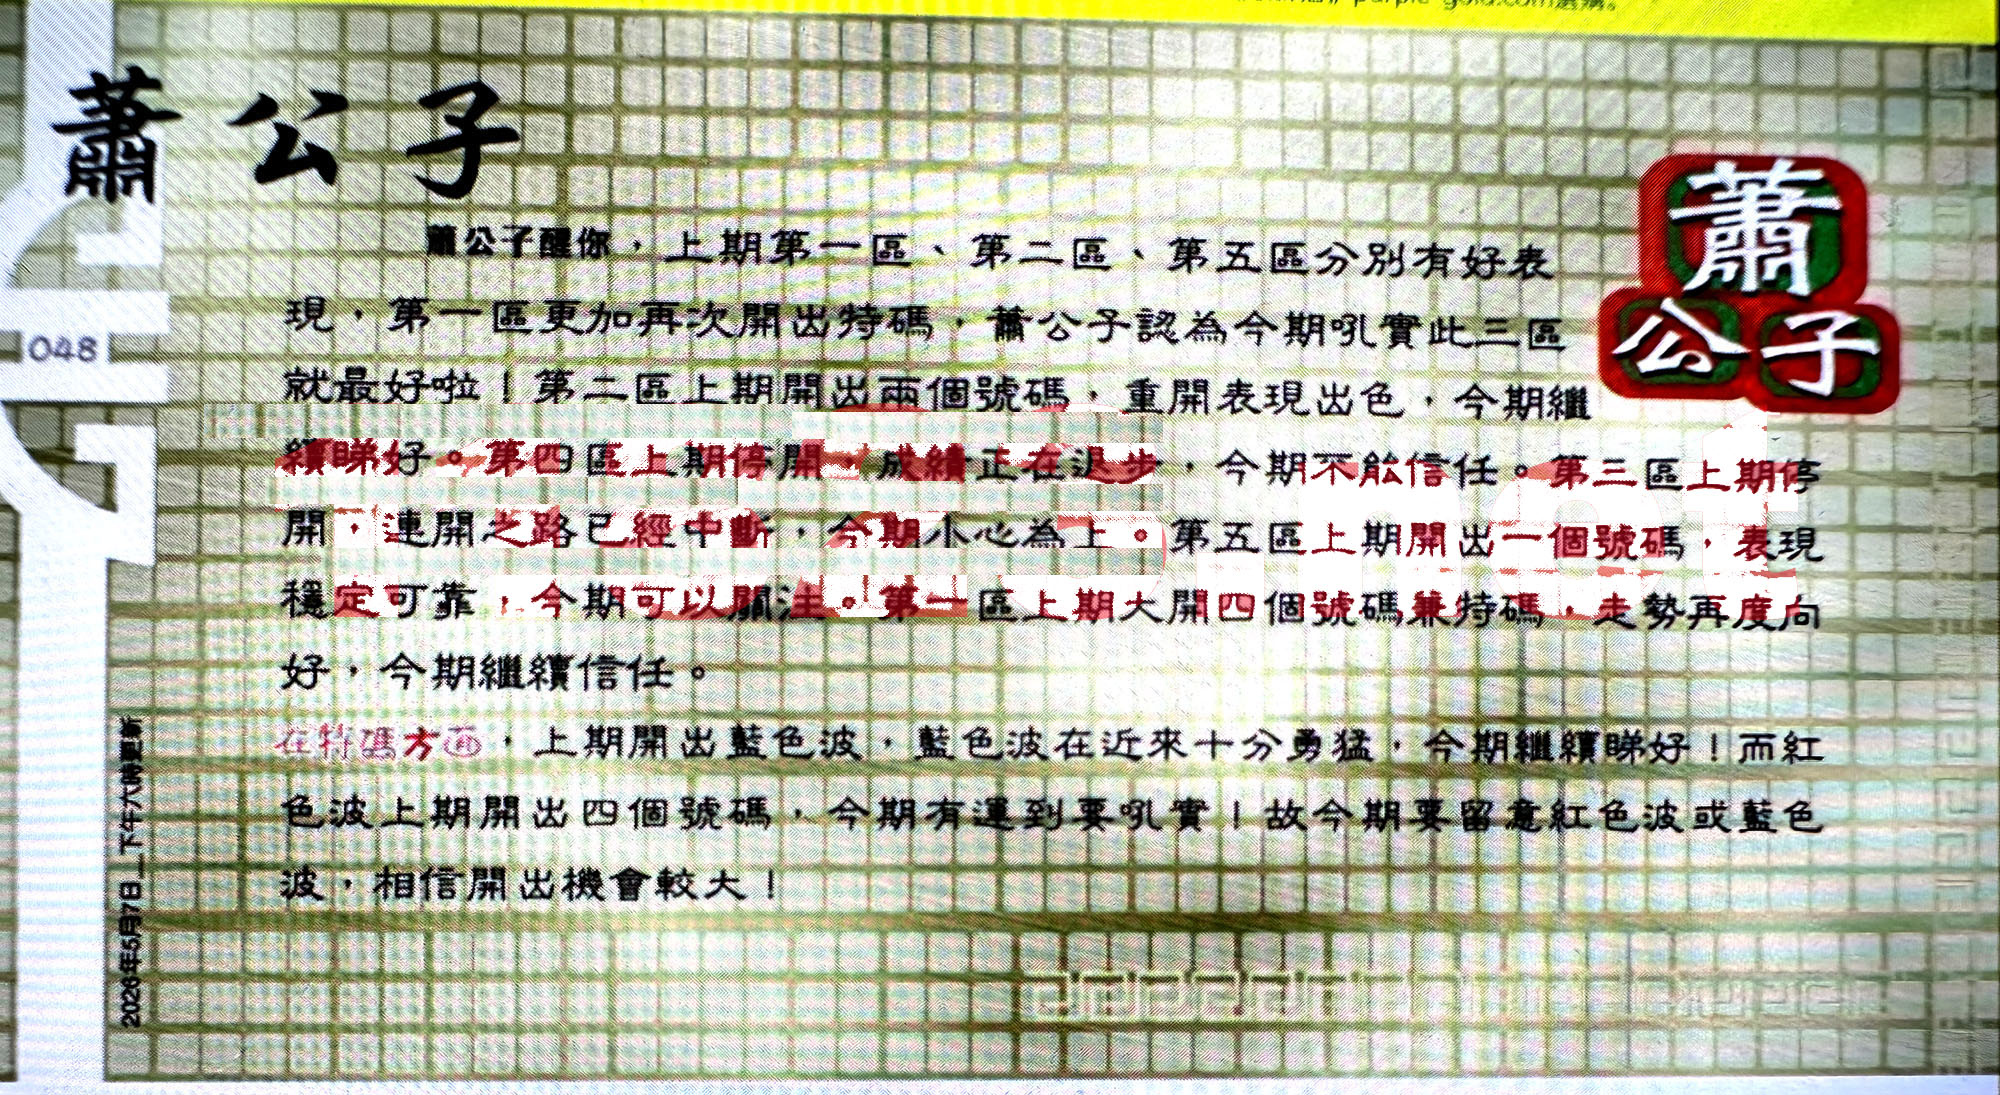 purple-gold.com選購。
蕭公子
蕭公子
蕭公子醒你，上期第一區、第二區、第五區分別有好表
現，第一區更加再次開出特碼，蕭公子認為今期吼實此三區
048
就最好啦！第二區上期開出兩個號碼，重開表現出色，今期繼
續睇好。第四區上期停開，成績正在退步，今期不能信任。第三區上期停
開，連開之路已經中斷，今期小心為上。第五區上期開出一個號碼，表現
穩定可靠，今期可以關注。第一區上期大開四個號碼兼特碼，走勢再度向
好，今期繼續信任。
在特碼方面，上期開出藍色波，藍色波在近來十分勇猛，今期繼續睇好！而紅
色波上期開出四個號碼，今期有運到要吼實！故今期要留意紅色波或藍色
波，相信開出機會較大！
2026年5月7日__下午六時更新